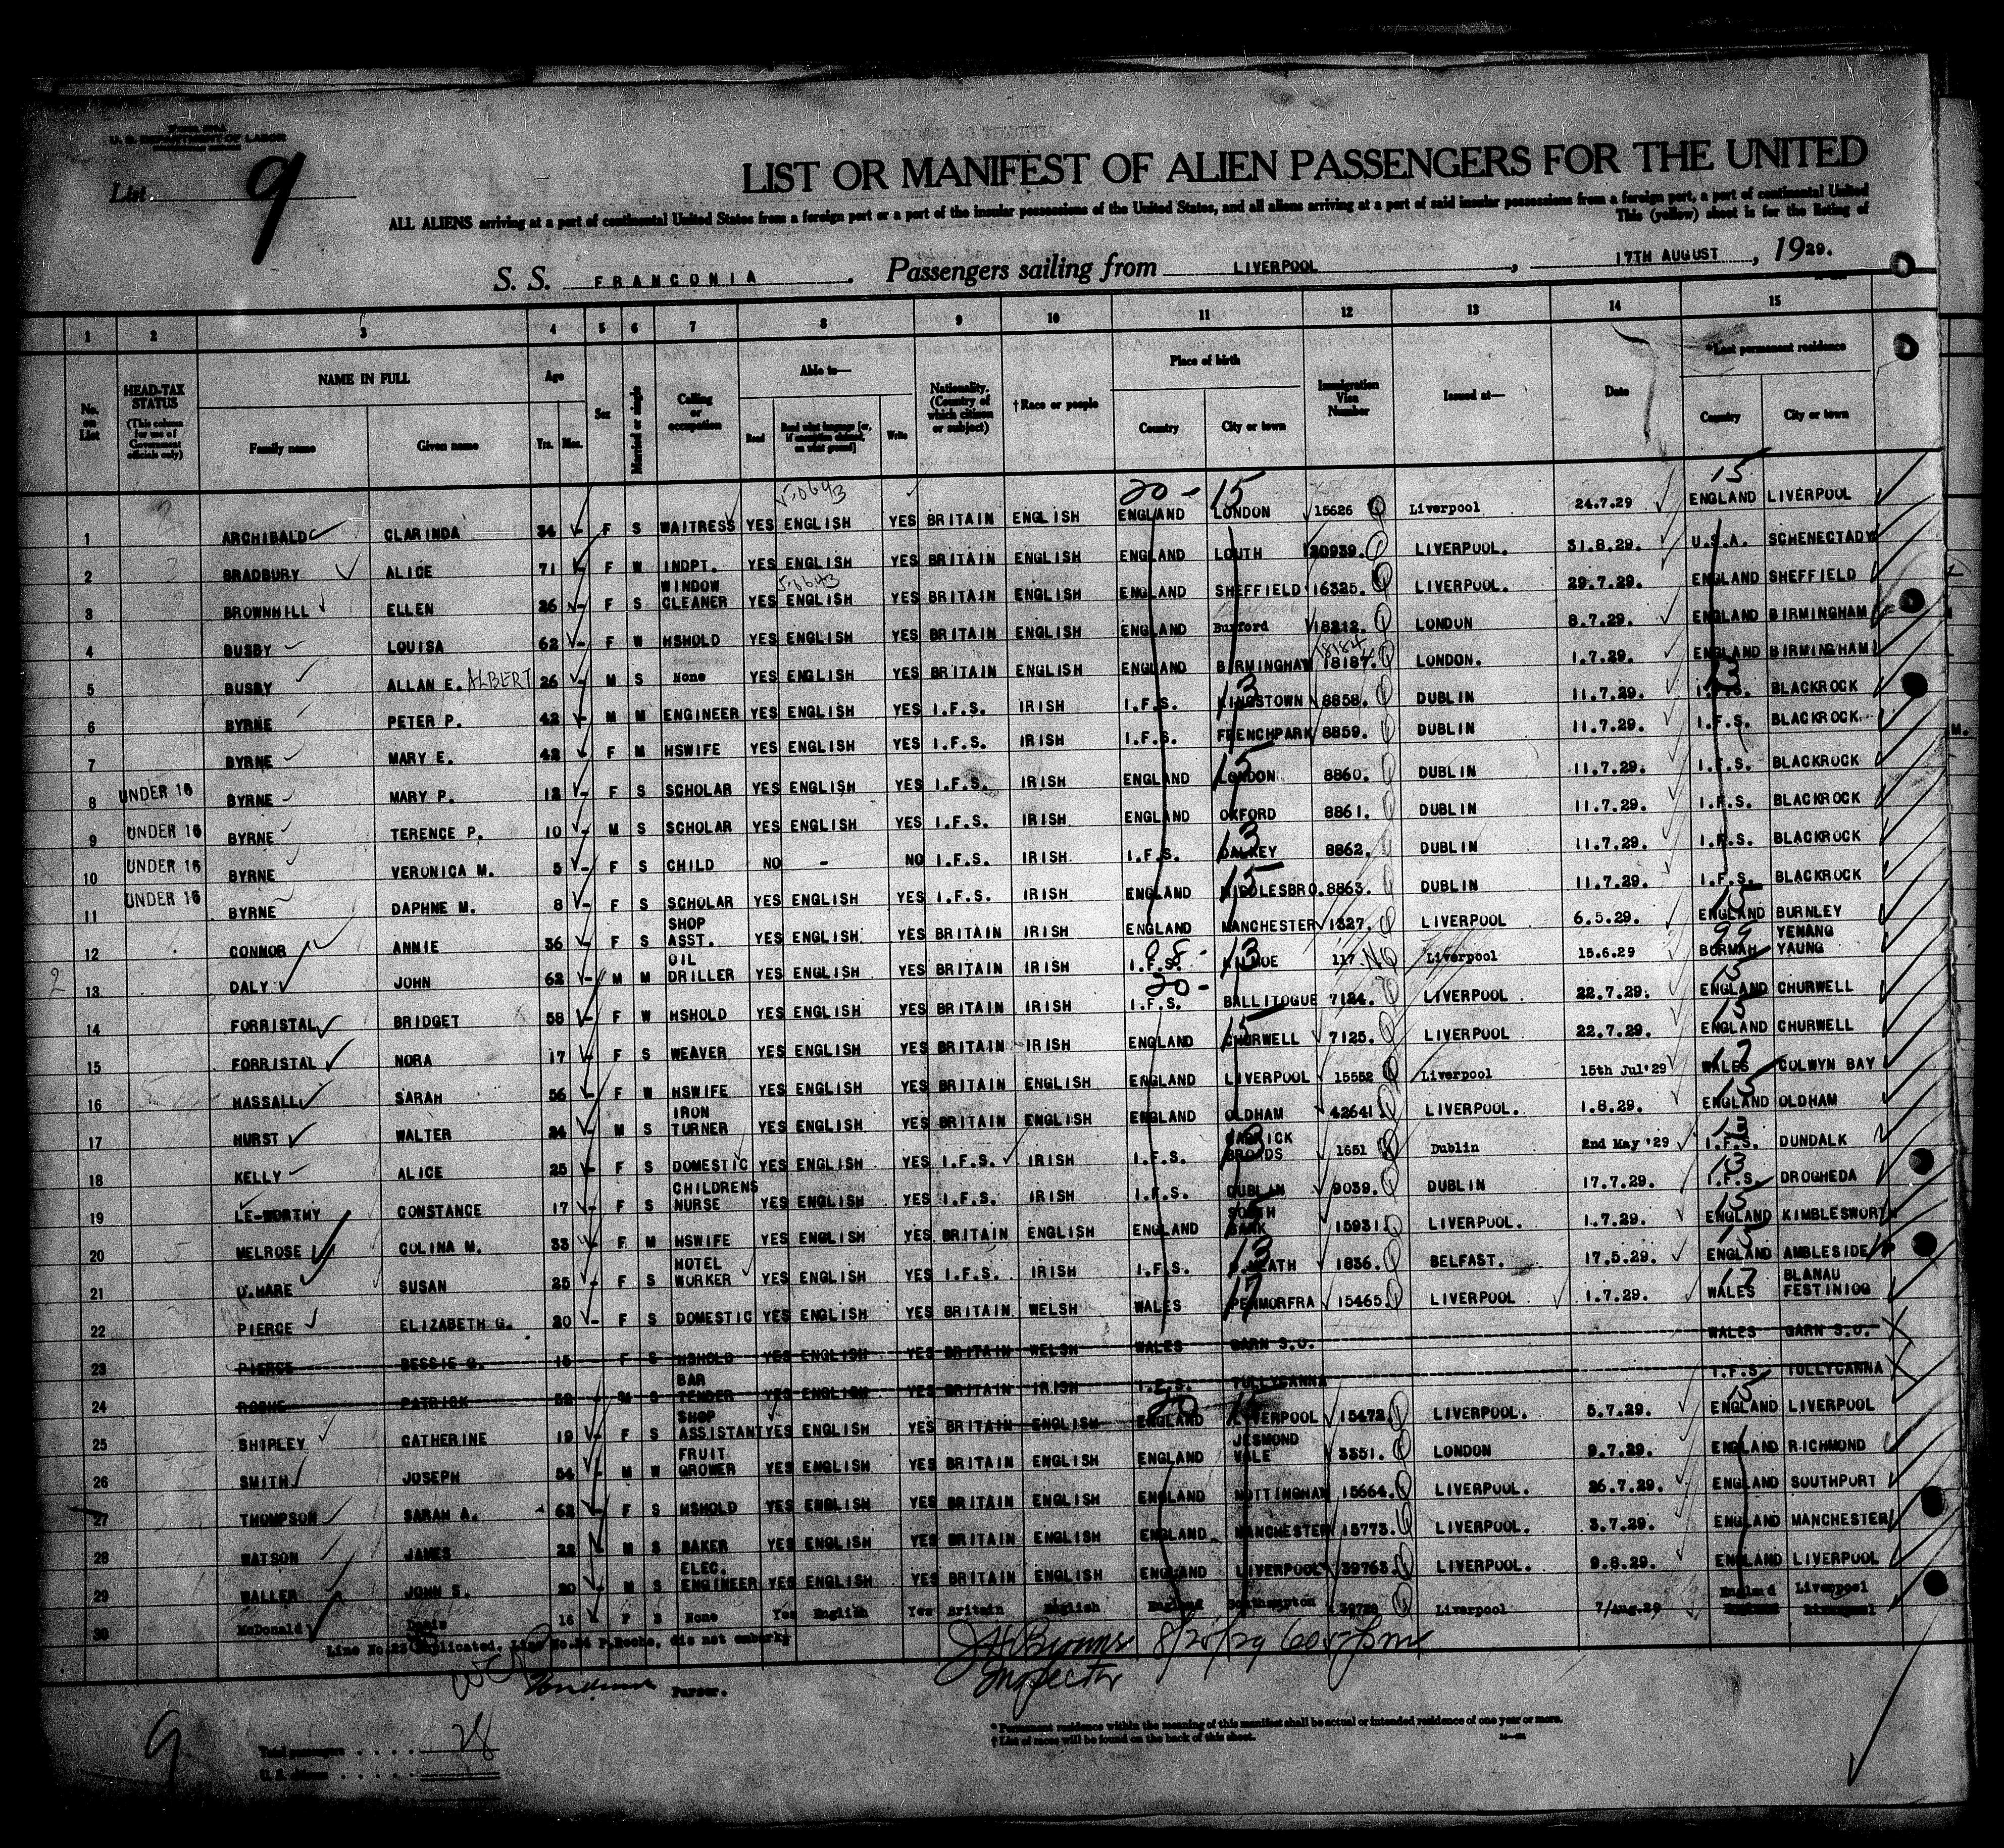 U. S. DEPARTMENT OF LABOR
List 9
LIST OR MANIFEST OF ALIEN PASSENGERS FOR THE UNITED
ALL ALIENS arriving at a port of continental United States from a foreign port or a port of the insular possessions of the United States, and all aliens arriving at a port of said insular possessions from a foreign port, a port of continental United
This (yellow) sheet is for the listing of
S. S. FRANCONIA. Passengers sailing from LIVERPOOL, 17TH AUGUST, 1929.
1 2 3 4 5 6 7 8 9 10 11 12 13 14 15
No. on List HEAD-TAX STATUS (This column for use of Government officials only) NAME IN FULL Family name Given name Age Yrs. Mos. Sex Married or single Calling or occupation Able to— Read Read what language [or, if exemption claimed, on what ground] Write Nationality. (Country of which citizen or subject) †Race or people Place of birth Country City or town Immigration Visa Number Issued at— Date *Last permanent residence Country City or town
20 - 15 15
1 ARCHIBALD CLARINDA 34 F S WAITRESS YES ENGLISH YES BRITAIN ENGLISH ENGLAND LONDON 15626 Liverpool 24.7.29 ENGLAND LIVERPOOL
2 BRADBURY ALICE 71 F W INDPT. YES ENGLISH YES BRITAIN ENGLISH ENGLAND LOUTH LIVERPOOL. 31.8.29. U.S.A. SCHENECTADY
3 BROWNHILL ELLEN 26 F S WINDOW CLEANER YES ENGLISH YES BRITAIN ENGLISH ENGLAND SHEFFIELD 16325. LIVERPOOL. 29.7.29. ENGLAND SHEFFIELD
4 BUSBY LOUISA 62 F W HSHOLD YES ENGLISH YES BRITAIN ENGLISH ENGLAND Burford 18212. LONDON 8.7.29. ENGLAND BIRMINGHAM
5 BUSBY ALLAN E. ALBERT 26 M S None YES ENGLISH YES BRITAIN ENGLISH ENGLAND BIRMINGHAM 18187. 18184 LONDON. 1.7.29. ENGLAND BIRMINGHAM
6 BYRNE PETER P. 42 M M ENGINEER YES ENGLISH YES I.F.S. IRISH I.F.S. KINGSTOWN 8858. DUBLIN 11.7.29. I.F.S. BLACKROCK
7 BYRNE MARY E. 42 F M HSWIFE YES ENGLISH YES I.F.S. IRISH I.F.S. FRENCHPARK 8859. DUBLIN 11.7.29. I.F.S. BLACKROCK.
8 UNDER 16 BYRNE MARY P. 12 F S SCHOLAR YES ENGLISH YES I.F.S. IRISH ENGLAND LONDON 8860. DUBLIN 11.7.29. I.F.S. BLACKROCK
9 UNDER 16 BYRNE TERENCE P. 10 M S SCHOLAR YES ENGLISH YES I.F.S. IRISH ENGLAND OXFORD 8861. DUBLIN 11.7.29. I.F.S. BLACKROCK
10 UNDER 16 BYRNE VERONICA M. 5 F S CHILD NO - NO I.F.S. IRISH I.F.S. DALKEY 8862. DUBLIN 11.7.29. I.F.S. BLACKROCK
11 UNDER 16 BYRNE DAPHNE M. 8 F S SCHOLAR YES ENGLISH YES I.F.S. IRISH ENGLAND MIDDLESBRO. 8863. DUBLIN 11.7.29. I.F.S. BLACKROCK
12 CONNOR ANNIE 36 F S SHOP ASST. YES ENGLISH YES BRITAIN IRISH ENGLAND MANCHESTER 1327. LIVERPOOL 6.5.29. ENGLAND BURNLEY
13 DALY JOHN 62 M M OIL DRILLER YES ENGLISH YES BRITAIN IRISH I.F.S. 117 Liverpool 15.6.29 BURMAH YENANG YAUNG
14 FORRISTAL BRIDGET 58 F W HSHOLD YES ENGLISH YES BRITAIN IRISH I.F.S. BALLITOGUE 7124. LIVERPOOL 22.7.29. ENGLAND CHURWELL
15 FORRISTAL NORA 17 F S WEAVER YES ENGLISH YES BRITAIN IRISH ENGLAND CHURWELL 7125. LIVERPOOL 22.7.29. ENGLAND CHURWELL
16 HASSALL SARAH 56 F W HSWIFE YES ENGLISH YES BRITAIN ENGLISH ENGLAND LIVERPOOL 15552 Liverpool 15th Jul'29 WALES COLWYN BAY
17 HURST WALTER 24 M S IRON TURNER YES ENGLISH YES BRITAIN ENGLISH ENGLAND OLDHAM 42641 LIVERPOOL. 1.8.29. ENGLAND OLDHAM
18 KELLY ALICE 25 F S DOMESTIC YES ENGLISH YES I.F.S. IRISH I.F.S. BROADS 1651 Dublin 2nd May '29 I.F.S. DUNDALK
19 LE-WORTHY CONSTANCE 17 F S CHILDRENS NURSE YES ENGLISH YES I.F.S. IRISH I.F.S. DUBLIN 9039. DUBLIN 17.7.29. I.F.S. DROGHEDA
20 MELROSE COLINA M. 33 F M HSWIFE YES ENGLISH YES BRITAIN ENGLISH ENGLAND SOUTH BANK 15931 LIVERPOOL. 1.7.29. ENGLAND KIMBLESWORTH
21 O'HARE SUSAN 25 F S HOTEL WORKER YES ENGLISH YES I.F.S. IRISH I.F.S. 1836. BELFAST. 17.5.29. ENGLAND AMBLESIDE
22 PIERCE ELIZABETH G. 20 F S DOMESTIC YES ENGLISH YES BRITAIN WELSH WALES PENMORFRA 15465. LIVERPOOL 1.7.29. WALES BLANAU FESTINIOG
23 PIERCE BESSIE G. 15 F S HSHOLD YES ENGLISH YES BRITAIN WELSH WALES GARN S.O. WALES GARN S.O.
24 ROCHE PATRICK 52 M S BAR TENDER YES ENGLISH YES BRITAIN IRISH I.F.S. TULLYCANNA I.F.S. TULLYCANNA
25 SHIPLEY CATHERINE 19 F S SHOP ASSISTANT YES ENGLISH YES BRITAIN ENGLISH ENGLAND LIVERPOOL 15472. LIVERPOOL. 5.7.29. ENGLAND LIVERPOOL
26 SMITH JOSEPH 54 M W FRUIT GROWER YES ENGLISH YES BRITAIN ENGLISH ENGLAND JESMOND VALE 3351. LONDON 9.7.29. ENGLAND RICHMOND
27 THOMPSON SARAH A. 62 F S HSHOLD YES ENGLISH YES BRITAIN ENGLISH ENGLAND NOTTINGHAM 15664. LIVERPOOL. 26.7.29. ENGLAND SOUTHPORT
28 WATSON JAMES 22 M S BAKER YES ENGLISH YES BRITAIN ENGLISH ENGLAND MANCHESTER 15773. LIVERPOOL. 3.7.29. ENGLAND MANCHESTER
29 WALLER JOHN S. 20 M S ELEC. ENGINEER YES ENGLISH YES BRITAIN ENGLISH ENGLAND LIVERPOOL 39763. LIVERPOOL. 9.8.29. ENGLAND LIVERPOOL
30 McDonald 16 F S None Yes English Yes Britain English England Southampton Liverpool 7/Aug.29 England Liverpool
Line No.23 Duplicated. Line No.24 P.Roche, did not embark
Inspector 8/25/29
Purser.
* Permanent residence within the meaning of this manifest shall be actual or intended residence of one year or more.
† List of races will be found on the back of this sheet.
9
Total passengers . . . . 28
U. S. citizens . . . . .